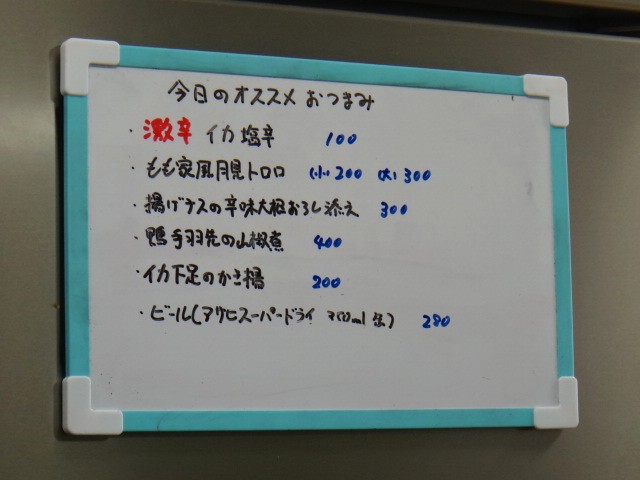 今日のオススメ おつまみ
・激辛 イカ塩辛 100
・もも家風月見トロロ (小)200 (大)300
・揚げナスの辛味大根おろし添え 300
・鴨手羽先の山椒煮 400
・イカ下足のかき揚 200
・ビール(アサヒスーパードライ 350ml 缶) 280